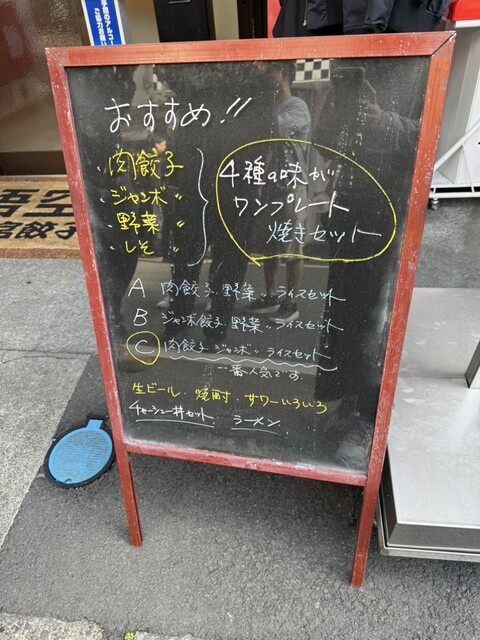 おすすめ!!
・肉餃子
・ジャンボ〃
・野菜〃
・しそ〃
4種の味が
ワンプレート
焼きセット
A 肉餃子. 野菜〃. ライスセット
B ジャンボ餃子. 野菜〃. ライスセット
C 肉餃子 ジャンボ〃 ライスセット
一番人気です.
生ビール. 焼酎. サワーいろいろ
チャーシュー丼セット. ラーメン.